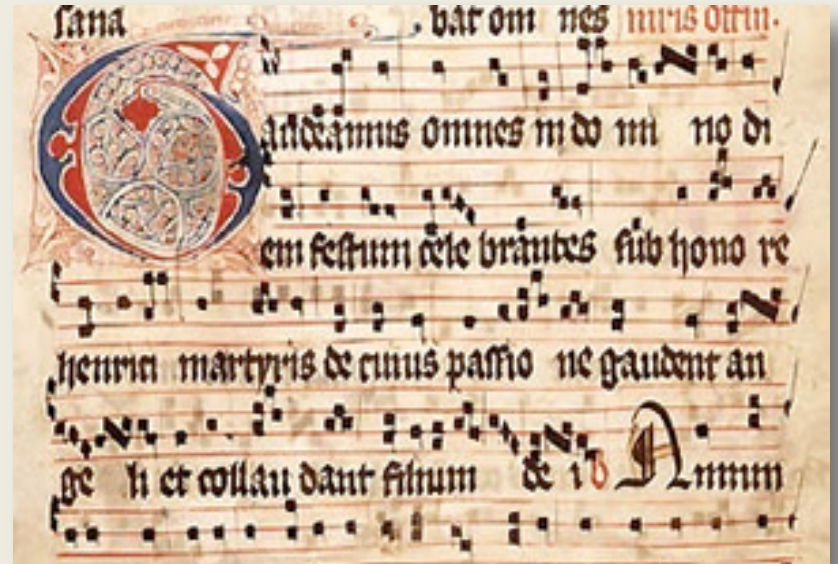 sana bat om nes miris offin.
Gaudeamus omnes in do mi no di
em festum cele brantes sub hono re
henrici martyris de cuius passio ne gaudent an
ge li et collau dant filium de i Annun